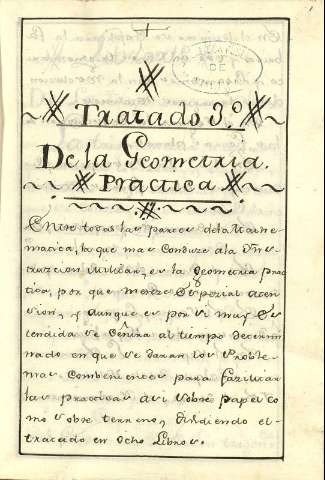 Tratado 3.º
De la Geometria.
Practica
Entre todas las partes de la Mathe-
matica, la que mas Conduze a la Yns-
truzcion Militar, es la Geometria prac
tica, por que mereze Espezial aten-
sion, y aunque es por si muy Es
tendida se Ceñira al tiempo determi
nado en que se daran los Proble-
mas Combenientes para fazilitar
las practicas asi sobre papel co
mo sobre terreno, dividiendo el
tratado en Ocho Libros.
DE